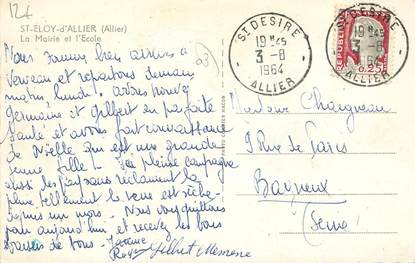 124
ST-ELOY-d'ALLIER (Allier)
La Mairie et l'Ecole
Nous sommes bien arrivés à
Verveau et repartons demain
matin, lundi. avons trouvé
Germaine et Gilbert en parfaite
santé et avons fait connaissance
de Noelle qui est une grande
jeune fille! Ici pleine campagne
aussi les paysans réclament la
pluie tellement la terre est sèche
depuis un mois. Nous vous quittons
pour aujourd'hui et recevez les bons
baisers de tous.
Gilbert
ST DESIRE
19H45
3-8
1964
ALLIER
ST DESIRE
19H45
3-8
1964
ALLIER
Madame Chaigneau
9 Rue de Paris
Bagneux
(Seine)